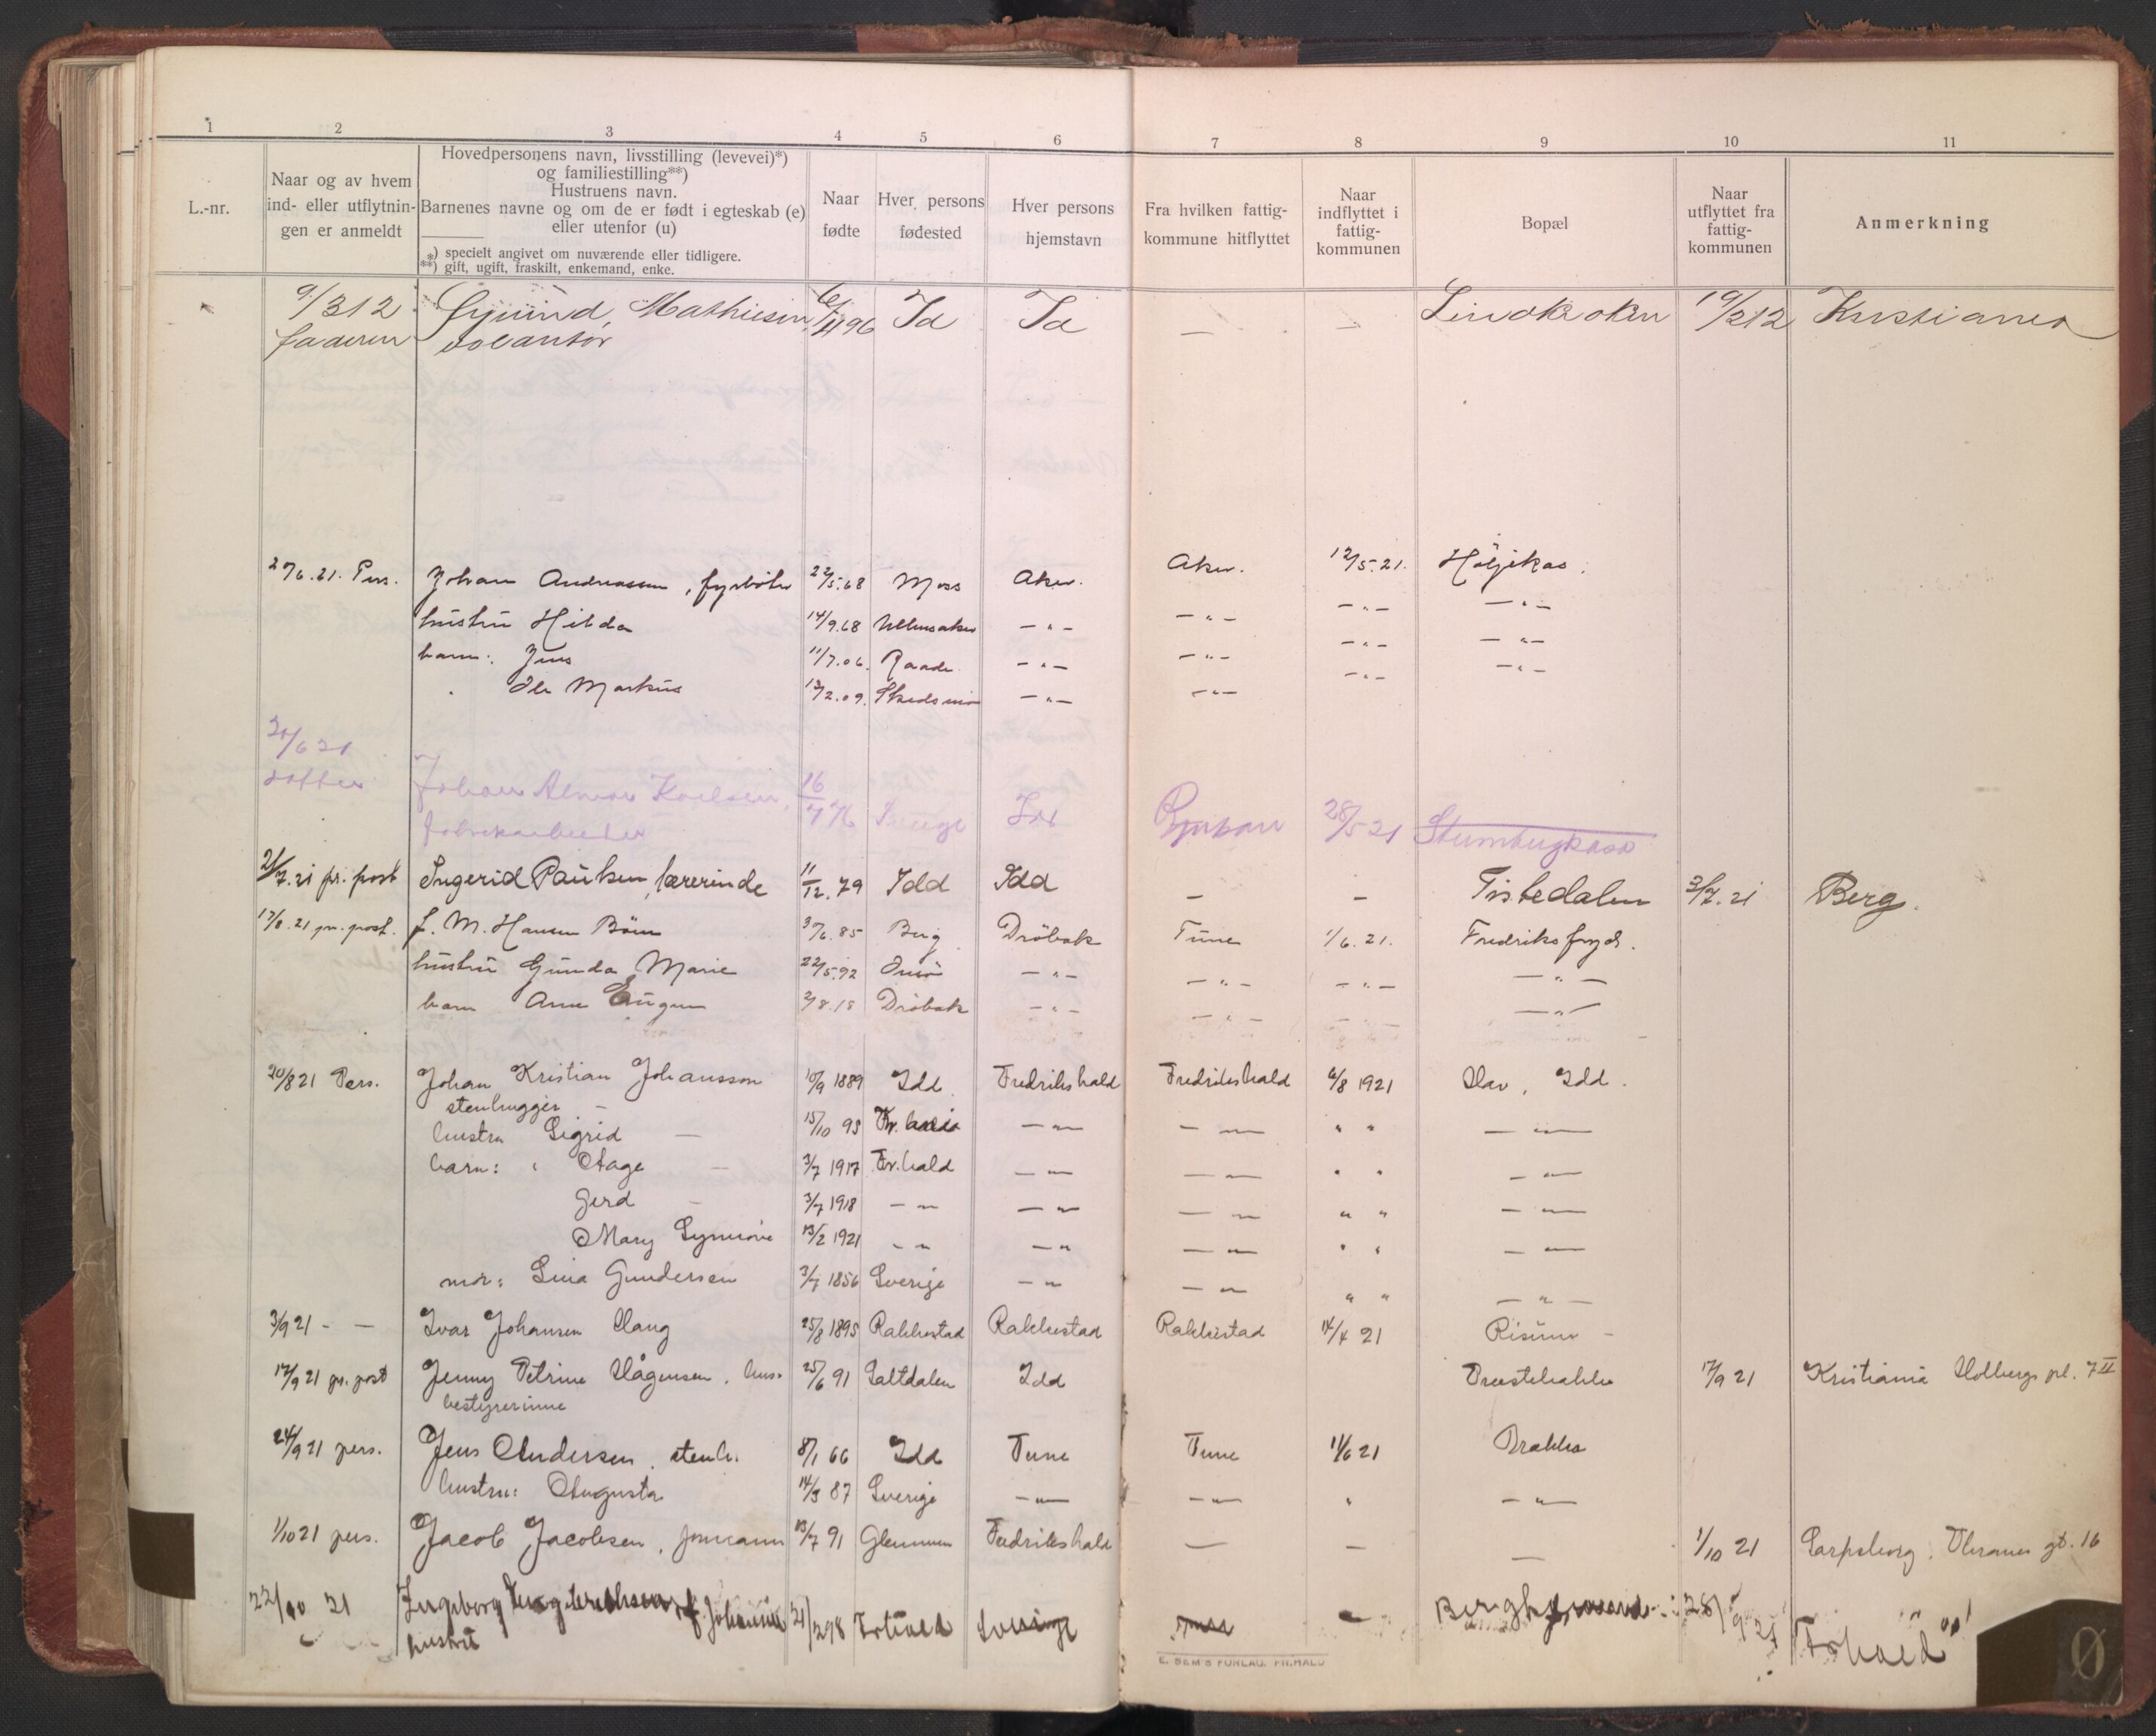 1 2 3 4 5 6 7 8 9 10 11
L.-nr.
Naar og av hvem
ind- eller utflytnin-
gen er anmeldt
Hovedpersonens navn, livsstilling (levevei)*)
og familiestilling**)
Hustruens navn.
Barnenes navne og om de er født i egteskab (e)
eller utenfor (u)
*) specielt angivet om nuværende eller tidligere.
**) gift, ugift, fraskilt, enkemand, enke.
Naar
fødte
Hver persons
fødested
Hver persons
hjemstavn
Fra hvilken fattig-
kommune hitflyttet
Naar
indflyttet i
fattig-
kommunen
Bopæl
Naar
utflyttet fra
fattig-
kommunen
Anmerkning
9/3 12 Mathiesen 6/11 96 Id Id — — 19/2 12 Kristiania
faderen
27/6.21. Pers. Johan Andreassen, fyrbøter 22/5.68 Moss Aker. Aker. 12/5.21.
hustru Hilda 14/9.68 Ullensaker — " — — " — — " — — " —
barn: Jens 11/7.06. Raade — " — — " — — " — — " —
Ole Markus 12/2.09. Skedsmo — " — — " — — " — — " —
21/6 21
Johan Karlsen, 16/7 76 Id 28/5 21
fabrikarbeider
21/7.21 pr. post Ingerid Paulsen, lærerinde 11/12.79 Idd Idd — — Tistedalen 3/7.21 Berg.
17/8.21 pr. post. J. M. Hansen 30/6.85 Berg Drøbak Tune 1/6.21. Fredriksfryd.
hustru Gunda Marie 22/5.92 Onsø — " — — " — — " — — " —
barn Arne Eugen 2/8.18 Drøbak — " — — " — — " — — " —
20/8 21 Pers. Johan Kristian Johansson 10/9 1889 Idd Fredrikshald Fredrikshald 6/8 1921 Idd.
stenhugger —
hustru Sigrid — 15/10 95 — " — — " — " " — " —
barn: Aage — 3/7 1917 Fr.hald — " — — " — " " — " —
Gerd — 3/7 1918 — " — " — — " — " " — " —
Mary Synnøve 13/2 1921 — " — " — — " — " " — " —
mor: Lina Gundersen 3/7 1856 Sverige — " — — " — " " — " —
3/9 21 — — Ivar Johansen Haug 25/8 1895 Rakkestad Rakkestad Rakkestad 14/4 21 Risum —
17/9 21 pr. post Jenny Petrine Hågensen, hus- 25/6 91 Saltdalen Idd Præstebakke 17/9 21 Kristiania Holbergs pl. 7 II
bestyrerinne
24/9 21 pers. Jens Andersen, stenh. 8/1 66 Idd Tune Tune 11/6 21 Brække
hustru: Augusta 14/3 87 Sverige — " — — " — " — " —
1/10 21 pers. Jacob Jacobsen, 13/7 91 Glemmen Fredrikshald — — — 1/10 21 Sarpsborg. gt. 16
22/10 21 Ingeborg f. Johansen 21/2 98 Frhald Sverige — 28/9 21 Frhald
hustru
E. SEM'S FORLAG. FR.HALD
Ø